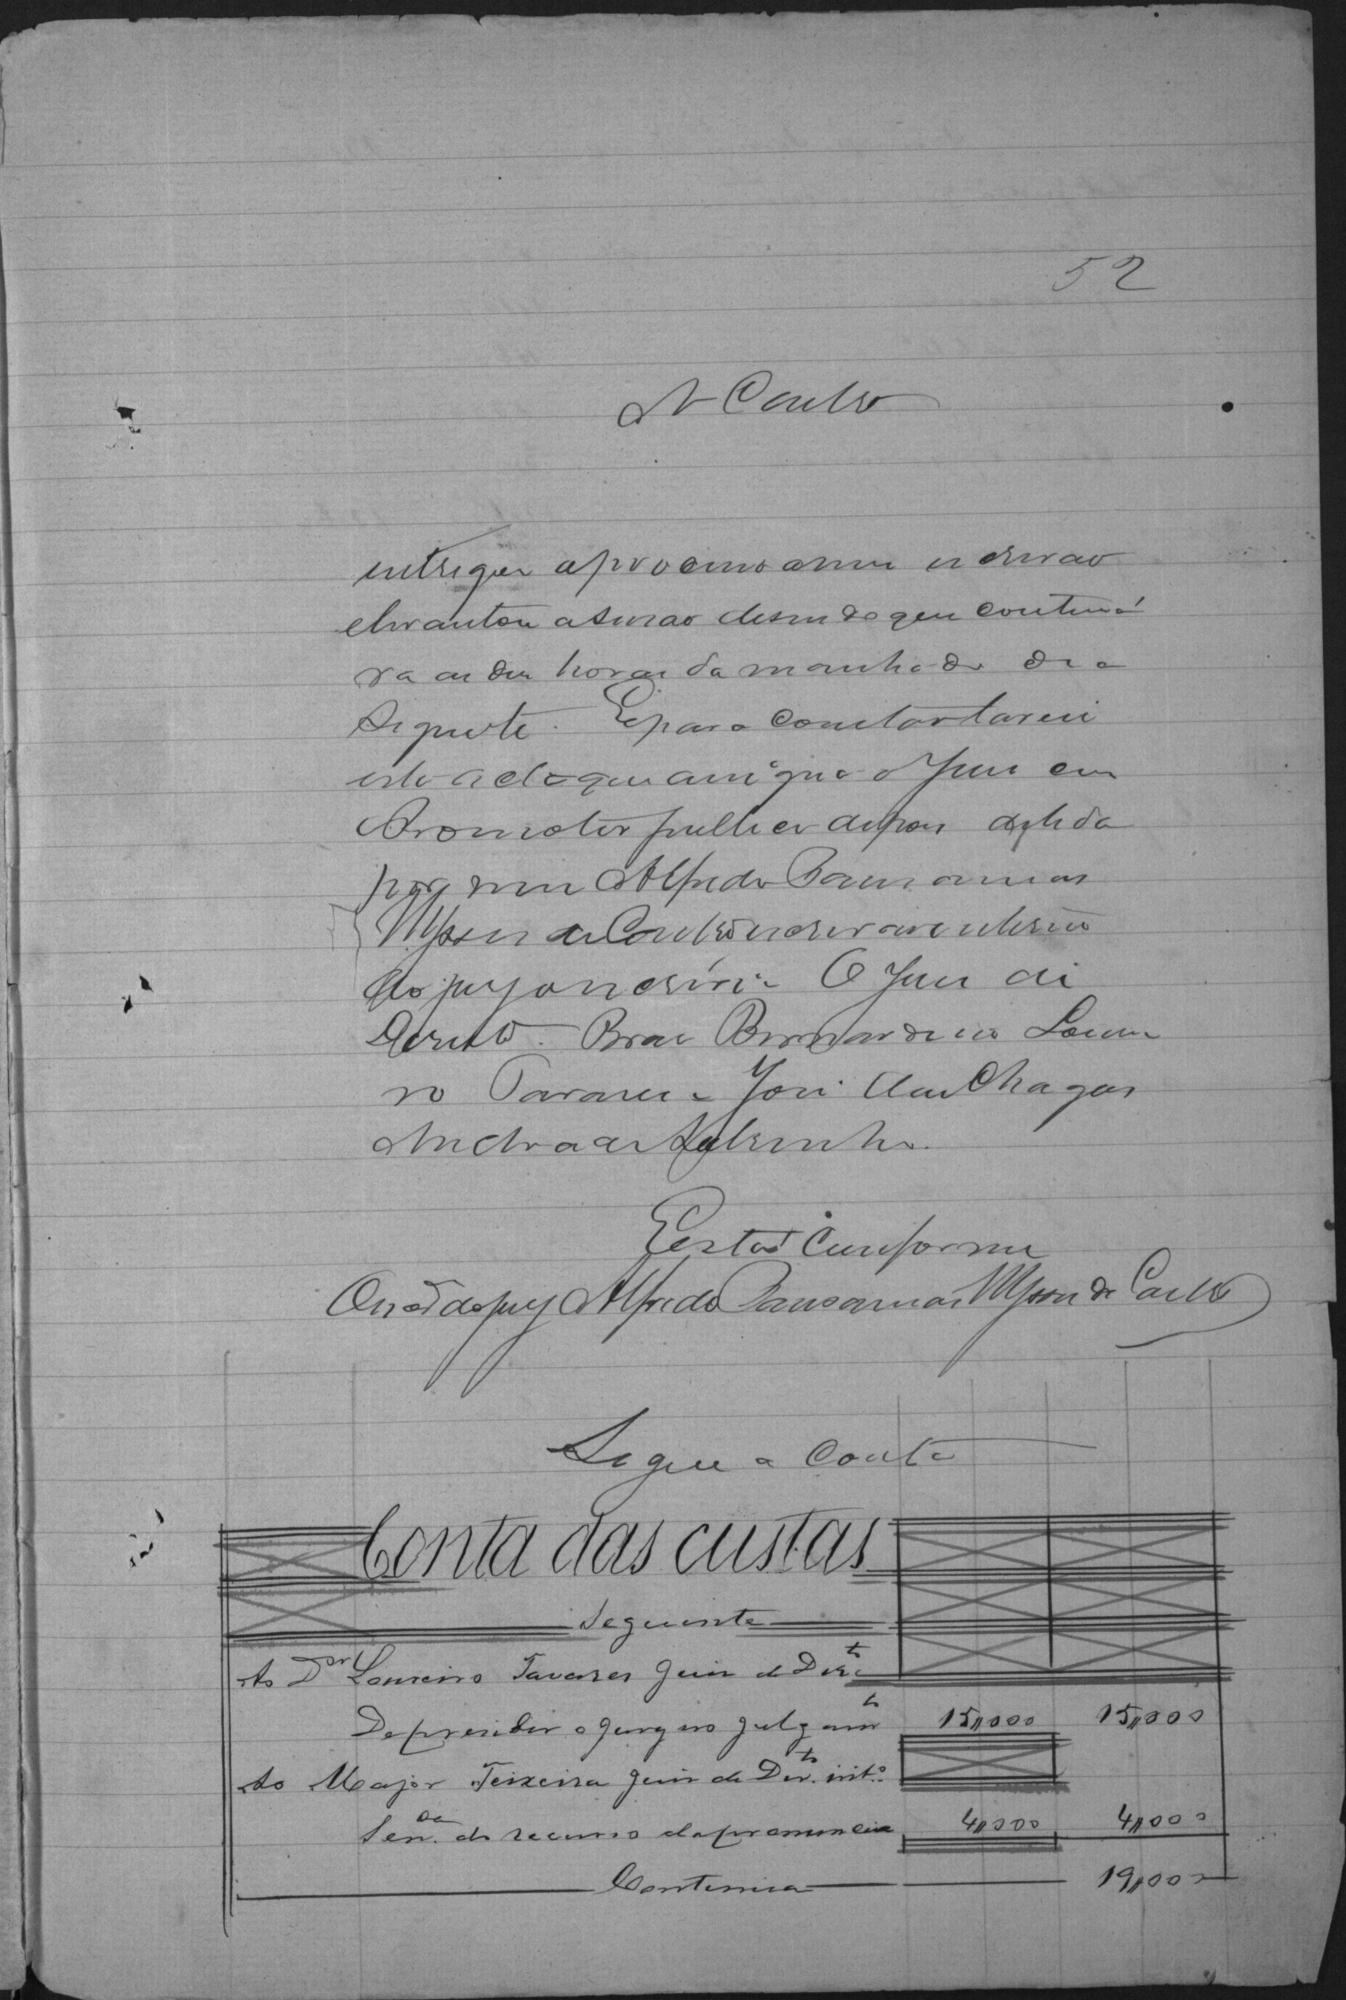 52
A Couto
entregue o processo a mim escrivão
levantou a sessão desendo que contenu
ra as des horas da manhã do dia
Siguste. E para constar lavrei
este acto que assigna o Juis com
Promotor publico depois de lida
por mim Alfredo Pausanias
de Couto escrivão
do jury o escrivi. O Juis di
Dereito. Bras Bernardino Lourei
ro Tavares. José das Chagas
Andrade Sobrinho.
Está Conforme
do jury Alfredo Pausanias de Couto
Segue a conta
Conta das custas
Seguinte
Ao Dor Loureiro Tavares Juis de Dirto
De presidir o jury no julgamto 15,000 15,000
Ao Major Teixeira Juis de Dirto. into.
Senca. do recurso da pronuncia 4,000 4,000
Continua 19,000